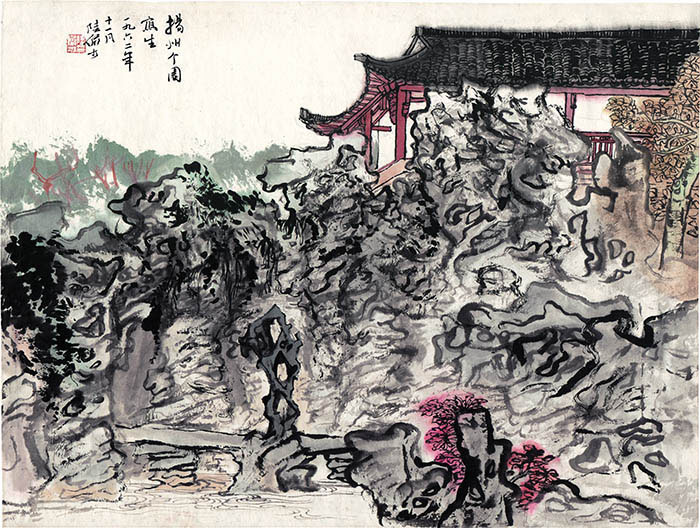 揚州个園
写生
一九六二年
十一月
陆俨少